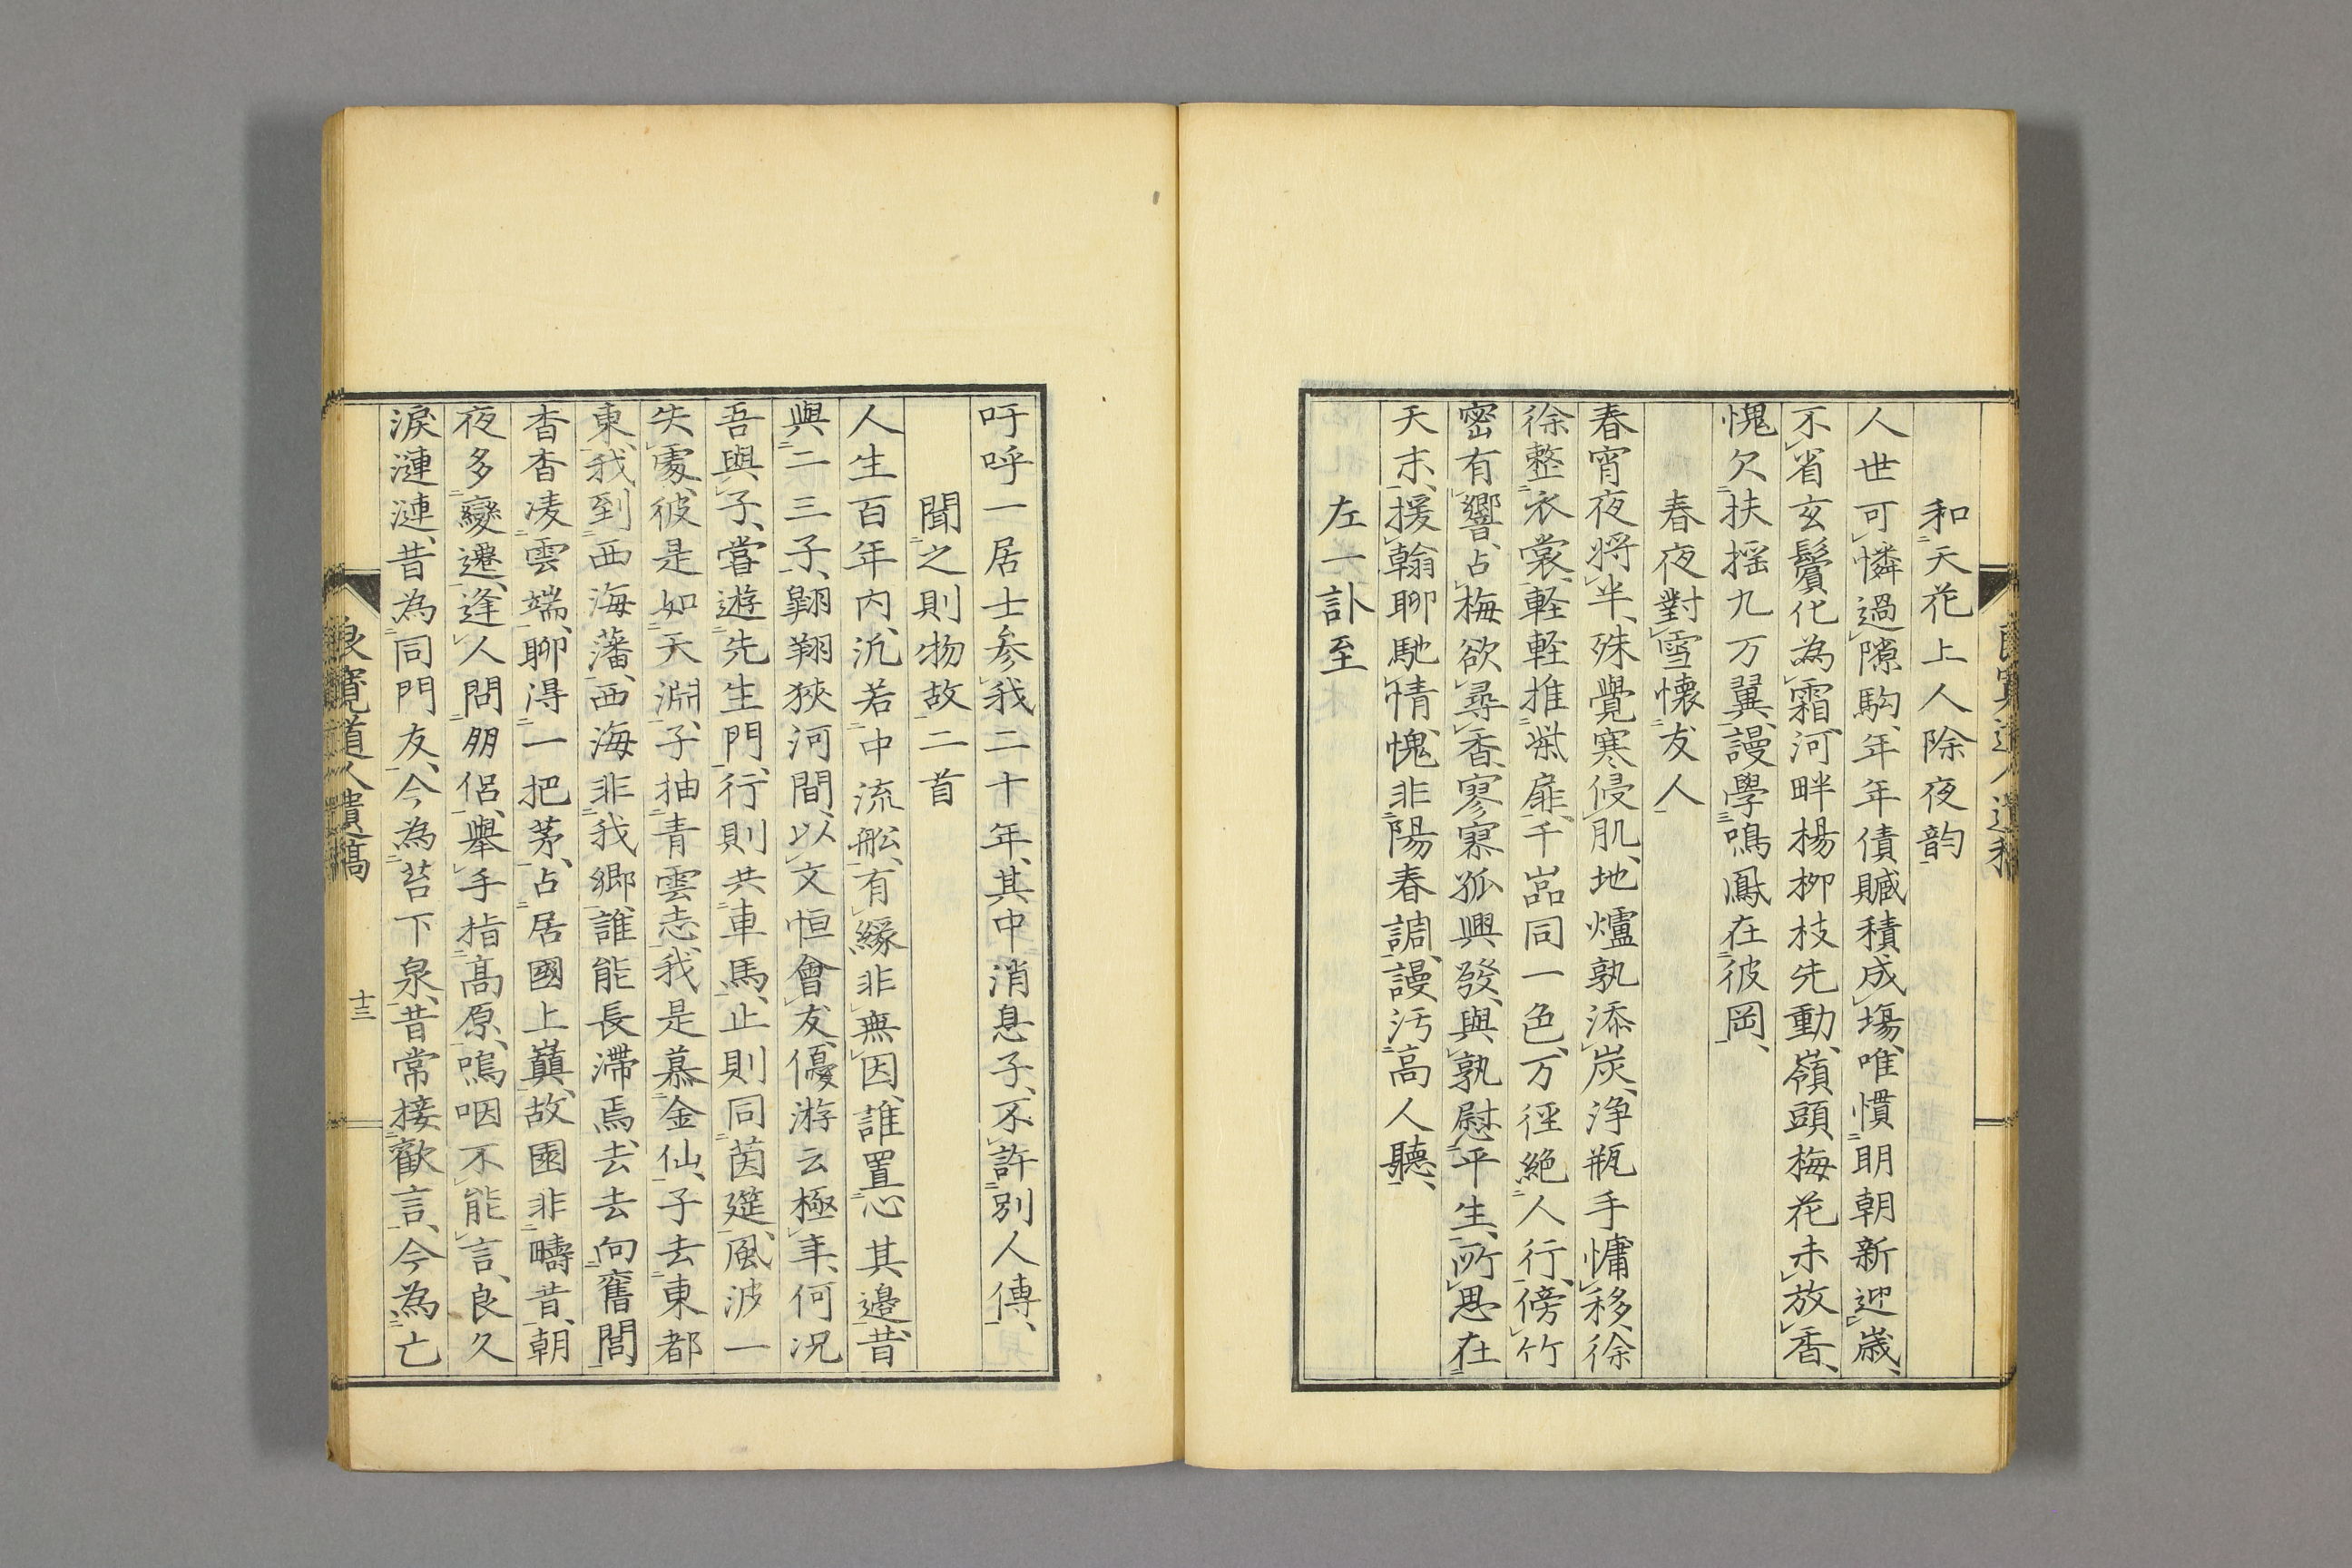 和天花上人除夜韵
人世可憐過隙駒、年年債贓積成塲、唯慣明朝新迎歳、
不省玄鬢化為霜、河畔楊柳枝先動、嶺頭梅花未放香、
愧欠扶揺九万翼、謾學鳴鳳在彼岡、
春夜對雪懷友人
春宵夜將半、殊覺寒侵肌、地爐孰添炭、浄瓶手慵移、徐
徐整衣裳、軽軽推柴扉、千嵓同一色、万徑絶人行、傍竹
密有響、占梅欲尋香、寥寥孤興發、與孰慰平生、所思在
天末、援翰聊馳情、愧非陽春調、謾汚高人聽、
左一訃至
吁呼一居士参我二十年、其中消息子、不許別人傳、
聞之則物故二首
人生百年内、汎若中流舩、有縁非無因、誰置心其邉、昔
與二三子、翺翔狹河間、以文恒會友、優游云極年、何況
吾與子、嘗遊先生門、行則共車馬、止則同茵筵、風波一
失處、彼是如天淵、子抽青雲志、我是慕金仙、子去東都
東、我到西海藩、西海非我郷、誰能長滯焉、去去向舊閭
杳杳凌雲端、聊得一把茅、占居國上巓、故園非疇昔、朝
夜多變遷、逢人問朋侶、擧手指高原、嗚咽不能言、良久
淚漣漣、昔為同門友、今為苔下泉、昔常接歡言、今為亡
良寛道人遺稿
十三